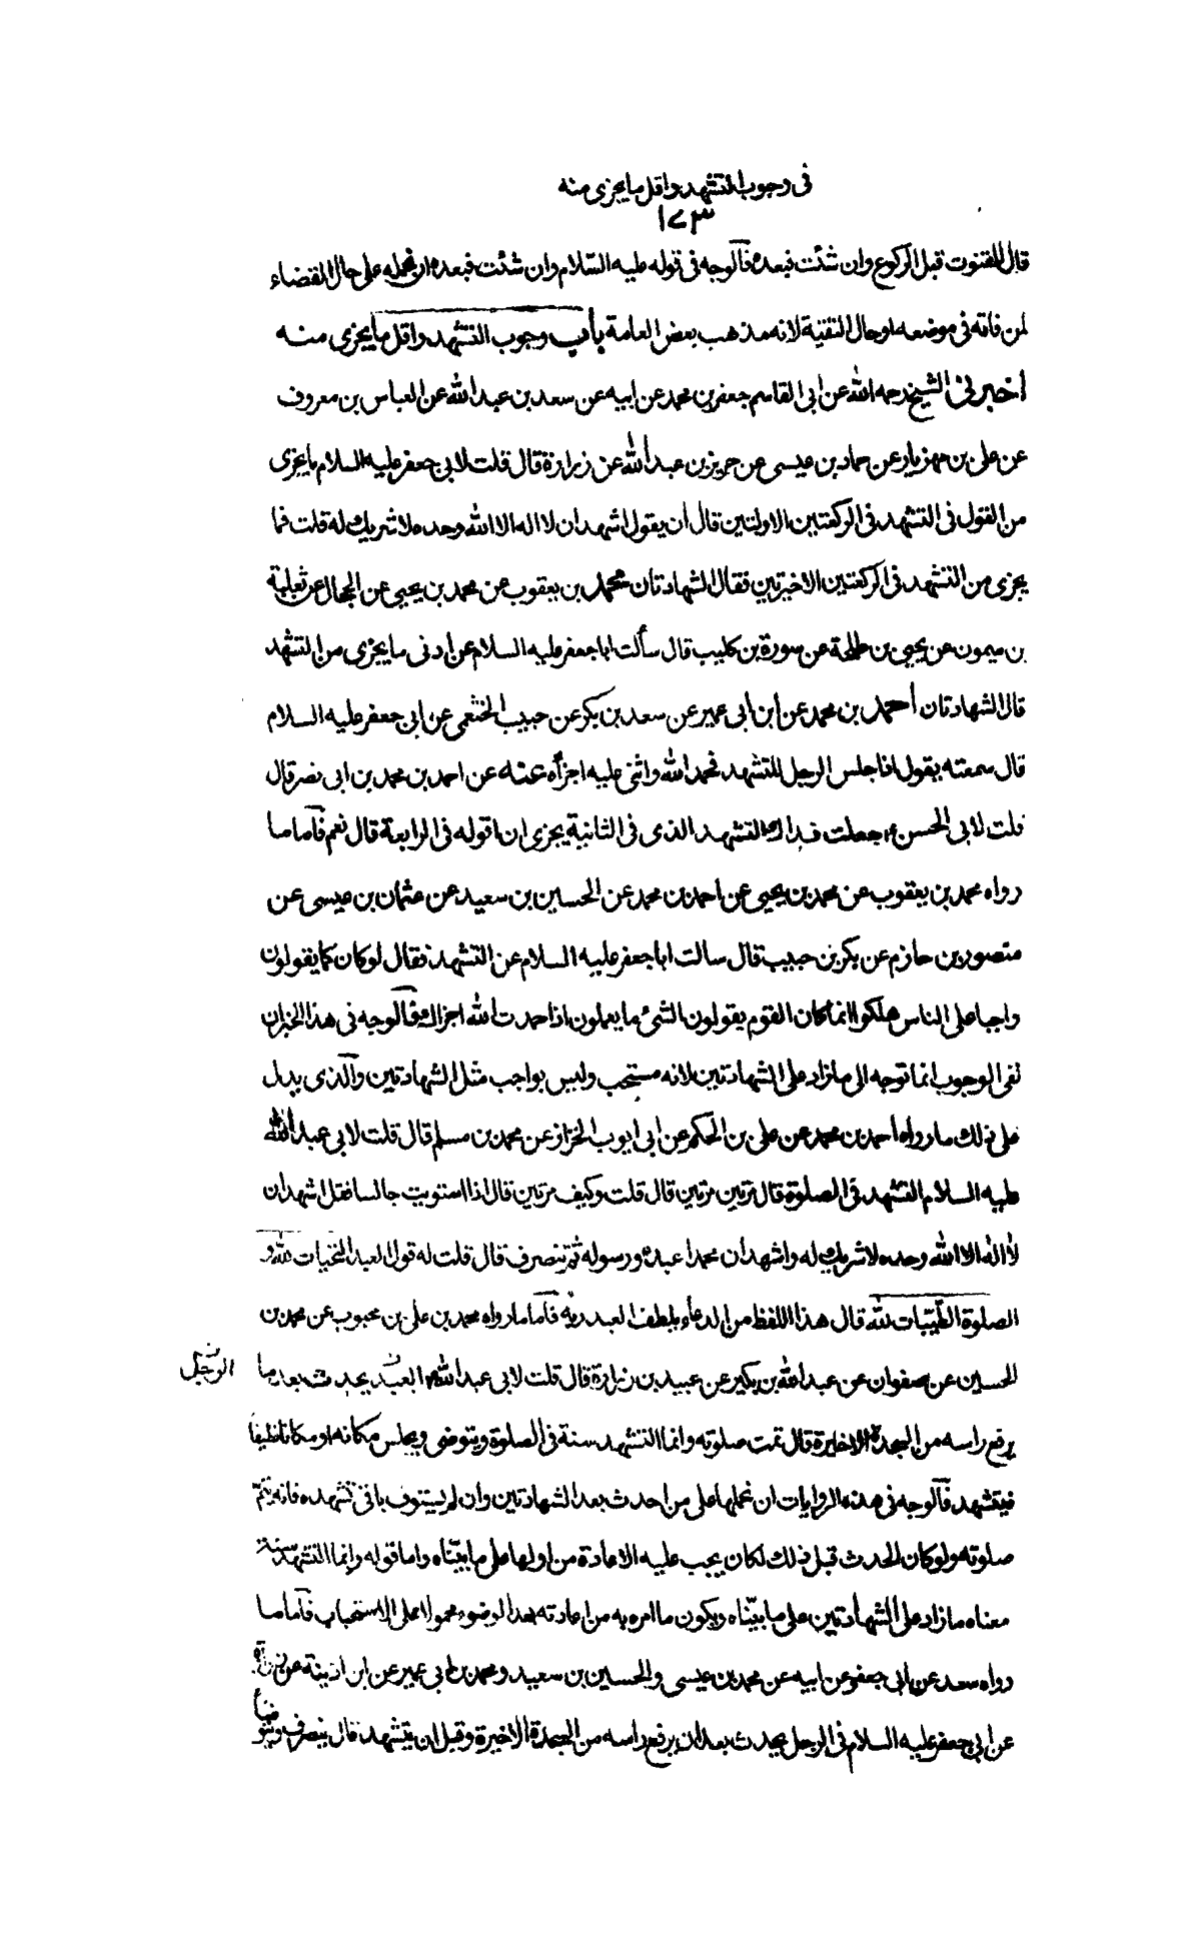 فى وجوب التشهد واقل ما يجزى منه
١٧٣
قال القنوت قبل الركوع وان شئت فبعده فالوجه فى قوله عليه السّلام وان شئت فبعده ان نحمله على حال القضاء
لمن فاته فى موضعه او حال التقية لانه مذهب بعض العامة باب وجوب التشهد واقل ما يجزى منه
اخبرنى الشيخ رحمه الله عن ابى القاسم جعفر بن محمد عن ابيه عن سعد بن عبد الله عن العباس بن معروف
عن على بن مهزيار عن حماد بن عيسى عن حريز بن عبد الله عن زرارة قال قلت لابى جعفر عليه السلام ما يجزى
من القول فى التشهد فى الركعتين الاولتين قال ان يقول اشهد ان لا اله الا الله وحده لا شريك له قلت فما
يجزى من التشهد فى الركعتين الاخيرتين فقال الشهادتان محمد بن يعقوب عن محمد بن يحيى عن الحجال عن ثعلبة
بن ميمون عن يحيى بن طلحة عن سورة بن كليب قال سألت ابا جعفر عليه السلام عن ادنى ما يجزى من التشهد
قال الشهادتان احمد بن محمد عن ابن ابى عمير عن سعد بن بكر عن حبيب الخثعمى عن ابى جعفر عليه السلام
قال سمعته يقول اذا جلس الرجل للتشهد فحمد الله واثنى عليه اجزأه عنه عن احمد بن محمد بن ابى نصر قال
قلت لابى الحسن ع جعلت فداك التشهد الذى فى الثانية يجزى ان اقوله فى الرابعة قال نعم فاما ما
رواه محمد بن يعقوب عن محمد بن يحيى عن احمد بن محمد عن الحسين بن سعيد عن عثمان بن عيسى عن
منصور بن حازم عن بكر بن حبيب قال سالت ابا جعفر عليه السلام عن التشهد فقال لو كان كما يقولون
واجبا على الناس هلكوا انما كان القوم يقولون الشئ ما يعلمون اذا حمدت الله اجزاك فالوجه فى هذا الخبر ان
نفى الوجوب انما توجه الى ما زاد على الشهادتين لانه مستحب وليس بواجب مثل الشهادتين والذى يدل
على ذلك ما رواه احمد بن محمد عن على بن الحكم عن ابى ايوب الخزاز عن محمد بن مسلم قال قلت لابى عبد الله
عليه السلام التشهد فى الصلوة قال مرتين مرتين قال قلت وكيف مرتين قال اذا استويت جالسا فقل اشهد ان
لا اله الا الله وحده لا شريك له واشهد ان محمدا عبده ورسوله ثم تنصرف قال قلت له قول العبد التحيات لله و
الصلوة الطّيّبات لله قال هذا اللفظ من الدعاء يلطف العبد ربّه فاما ما رواه محمد بن على بن محبوب عن محمد بن
الحسين عن صفوان عن عبد الله بن بكير عن عبيد بن زرارة قال قلت لابى عبد الله ع العبد يحدث بعد ما
الرجل
يرفع راسه من السجدة الاخيرة قال تمت صلوته وانما التشهد سنة فى الصلوة ويتوضى ويجلس مكانه او مكانا نظيفا
فيتشهد فالوجه فى هذه الروايات ان نحملها على من احدث بعد الشهادتين وان لم يستوف باقى تشهده فانه يتمّ
صلوته ولو كان الحدث قبل ذلك لكان يجب عليه الاعادة من اولها على ما بيّنّاه واما قوله وانما التشهد سنة
معناه ما زاد على الشهادتين على ما بيّنّاه ويكون ما امره به من اعادته بعد الوضوء محمولا على الاستحباب فاما ما
رواه سعد عن ابى جعفر عن ابيه عن محمد بن عيسى والحسين بن سعيد ومحمد بن ابى عمير عن ابن اذينة عن زرارة
عن ابى جعفر عليه السلام فى الرجل يحدث بعد ان يرفع راسه من السجدة الاخيرة وقبل ان يتشهد قال ينصرف ويتوضأ